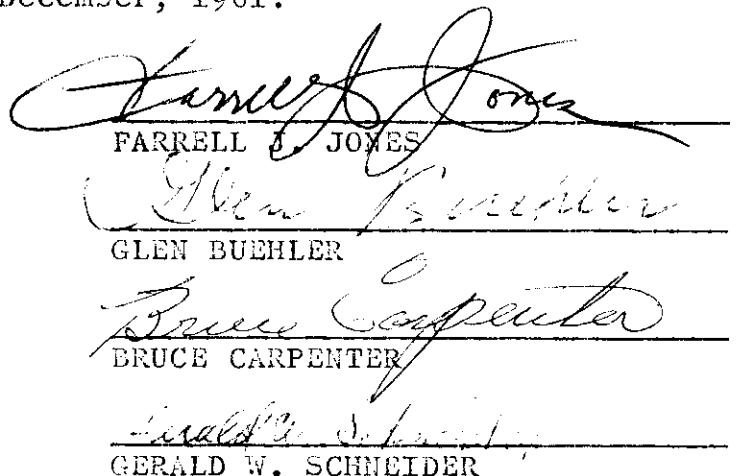 December, 1961.
Farrell J. Jones
FARRELL J. JONES
Glen Buehler
GLEN BUEHLER
Bruce Carpenter
BRUCE CARPENTER
Gerald W. Schneider
GERALD W. SCHNEIDER